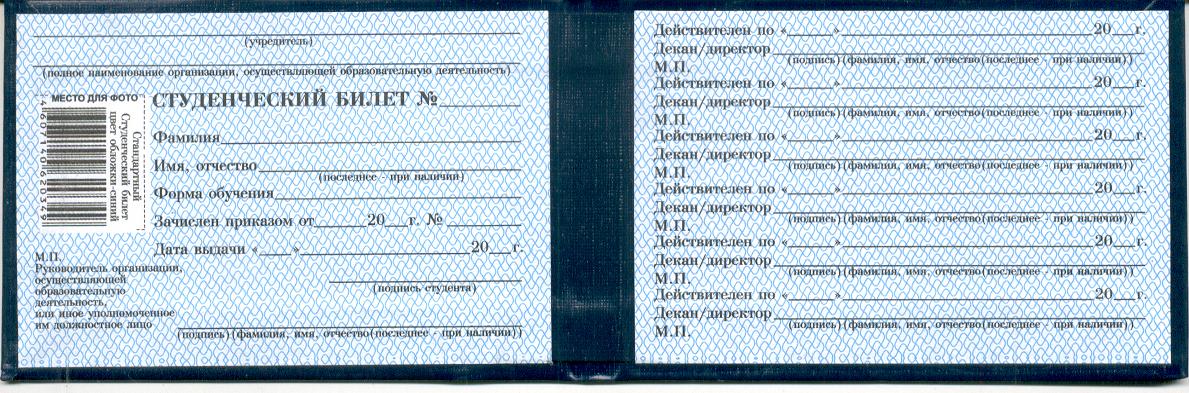 (учредитель)
(полное наименование организации, осуществляющей образовательную деятельность)
МЕСТО ДЛЯ ФОТО
4 607140 620349
Стандартный
Студенческий билет
цвет обложки-синий
СТУДЕНЧЕСКИЙ БИЛЕТ №
Фамилия
Имя, отчество
(последнее - при наличии)
Форма обучения
Зачислен приказом от 20 г. №
Дата выдачи « » 20 г.
(подпись студента)
М.П.
Руководитель организации,
осуществляющей
образовательную
деятельность,
или иное уполномоченное
им должностное лицо
(подпись) (фамилия, имя, отчество(последнее - при наличии))
Действителен по « » 20 г.
Декан/директор
(подпись) (фамилия, имя, отчество(последнее - при наличии))
М.П.
Действителен по « » 20 г.
Декан/директор
(подпись) (фамилия, имя, отчество(последнее - при наличии))
М.П.
Действителен по « » 20 г.
Декан/директор
(подпись) (фамилия, имя, отчество(последнее - при наличии))
М.П.
Действителен по « » 20 г.
Декан/директор
(подпись) (фамилия, имя, отчество(последнее - при наличии))
М.П.
Действителен по « » 20 г.
Декан/директор
(подпись) (фамилия, имя, отчество(последнее - при наличии))
М.П.
Действителен по « » 20 г.
Декан/директор
(подпись) (фамилия, имя, отчество(последнее - при наличии))
М.П.